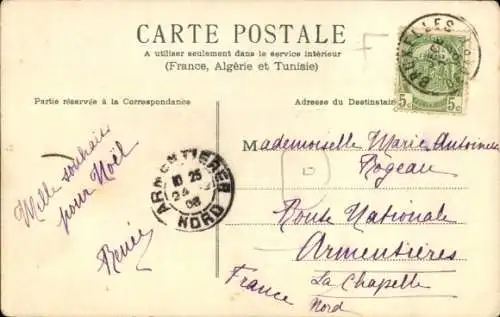 CARTE POSTALE
A utiliser seulement dans le service intérieur
(France, Algérie et Tunisie)
Partie réservée à la Correspondance
Adresse du Destinataire
BRUXELLES
5c 5c
ARMENTIÈRES
10 25
24
08
NORD
Mille souhaits
pour Noël
Renée
Mademoiselle Marie Antoinette
Rogeau
Route Nationale
Armentières
La Chapelle
France
Nord
F
D